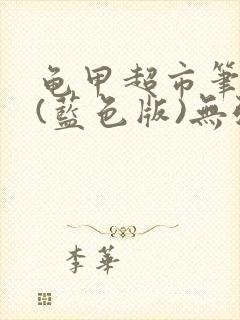 龟甲超市筆
(藍色版)無
李華